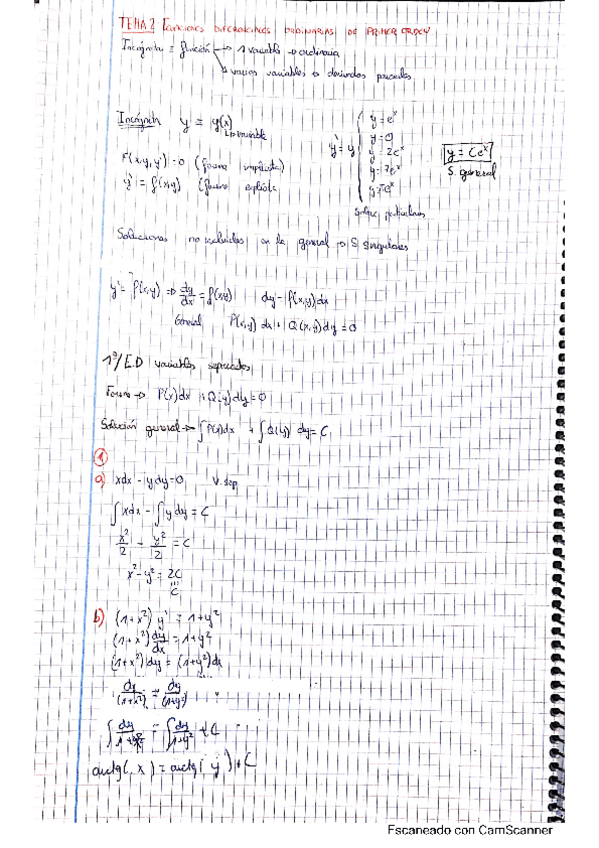 TEMA 2 Ecuaciones diferenciales ordinarias de primer orden
Incógnita = función → 1 variable → ordinaria
↘ varias variables → derivadas parciales
Incógnita y = y(x)
↳ variable
F(x,y,y') = 0 (forma implícita)
y' = f(x,y) (forma explícita
y' = y
y = e^x
y = 0
y = 2e^x
y = 7e^x
y = C e^x
S. general
Soluciones no incluidas en la general → S. Singulares
y' = f(x,y) ⇒ dy/dx = f(x,y) dy = f(x,y)dx
General P(x,y) dx + Q(x,y)dy = 0
1º/ E.D variables separadas
Forma → P(x)dx + Q(y)dy = 0
Solución general → ∫P(x)dx + ∫Q(y) dy = C
1
a) xdx - ydy = 0 V. sep
∫xdx - ∫ydy = C
x²/2 - y²/2 = C
x² - y² = 2C
C
b) (1+x²) y' = 1+y²
(1+x²) dy/dx = 1+y²
(1+x²)dy = (1+y²)dx
dx/(1+x²) = dy/(1+y²)
arctg( x ) = arctg( y ) + C
Escaneado con CamScanner